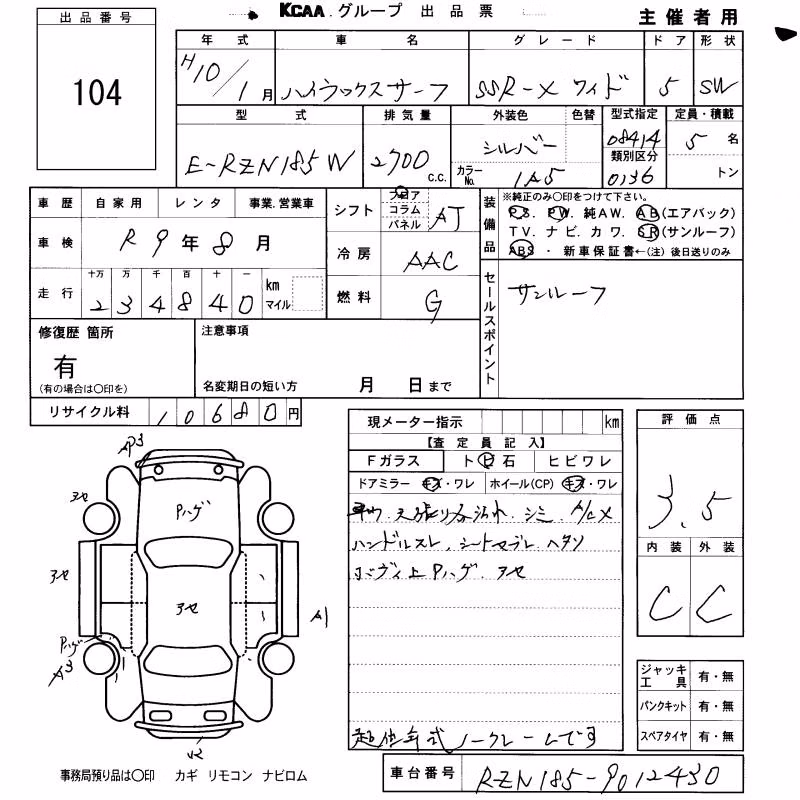 出品番号
104
KCAA.グループ 出品票
主催者用
年式 車名 グレード ドア 形状
H10/1月 ハイラックスサーフ SSR-X ワイド 5 SW
型式 排気量 外装色 色替 型式指定 定員・積載
E-RZN185W 2700 C.C. シルバー 08414 5名
カラーNo. 1A5 類別区分 0136 トン
車歴 自家用 レンタ 事業.営業車
シフト フロア コラム パネル AT
装備品 ※純正のみ〇印をつけて下さい。
PS. PW. 純AW. AB(エアバック)
TV. ナビ. カワ. SR(サンルーフ)
ABS ・ 新車保証書←(注)後日送りのみ
車検 R9年8月
冷房 AAC
走行 十万 万 千 百 十 一 km マイル
234840
燃料 G
セールスポイント サンルーフ
修復歴 箇所
有
(有の場合は〇印を)
注意事項
名変期日の短い方 月 日まで
リサイクル料 10680円
現メーター指示 km
【査定員記入】
Fガラス トビ石 ヒビワレ
ドアミラー キズ・ワレ ホイール(CP) キズ・ワレ
天張り 汚れ. シミ A/C X
ハンドルスレ, シート
ボディ上Pハゲ. アセ
低年式ノークレームです
評価点
3.5
内装 外装
C C
ジャッキ工具 有・無
パンクキット 有・無
スペアタイヤ 有・無
AP3
アセ
Pハゲ
アセ
アセ
A1
Pハゲ
A3
事務局預り品は〇印 カギ リモコン ナビロム
車台番号 RZN185-9012430